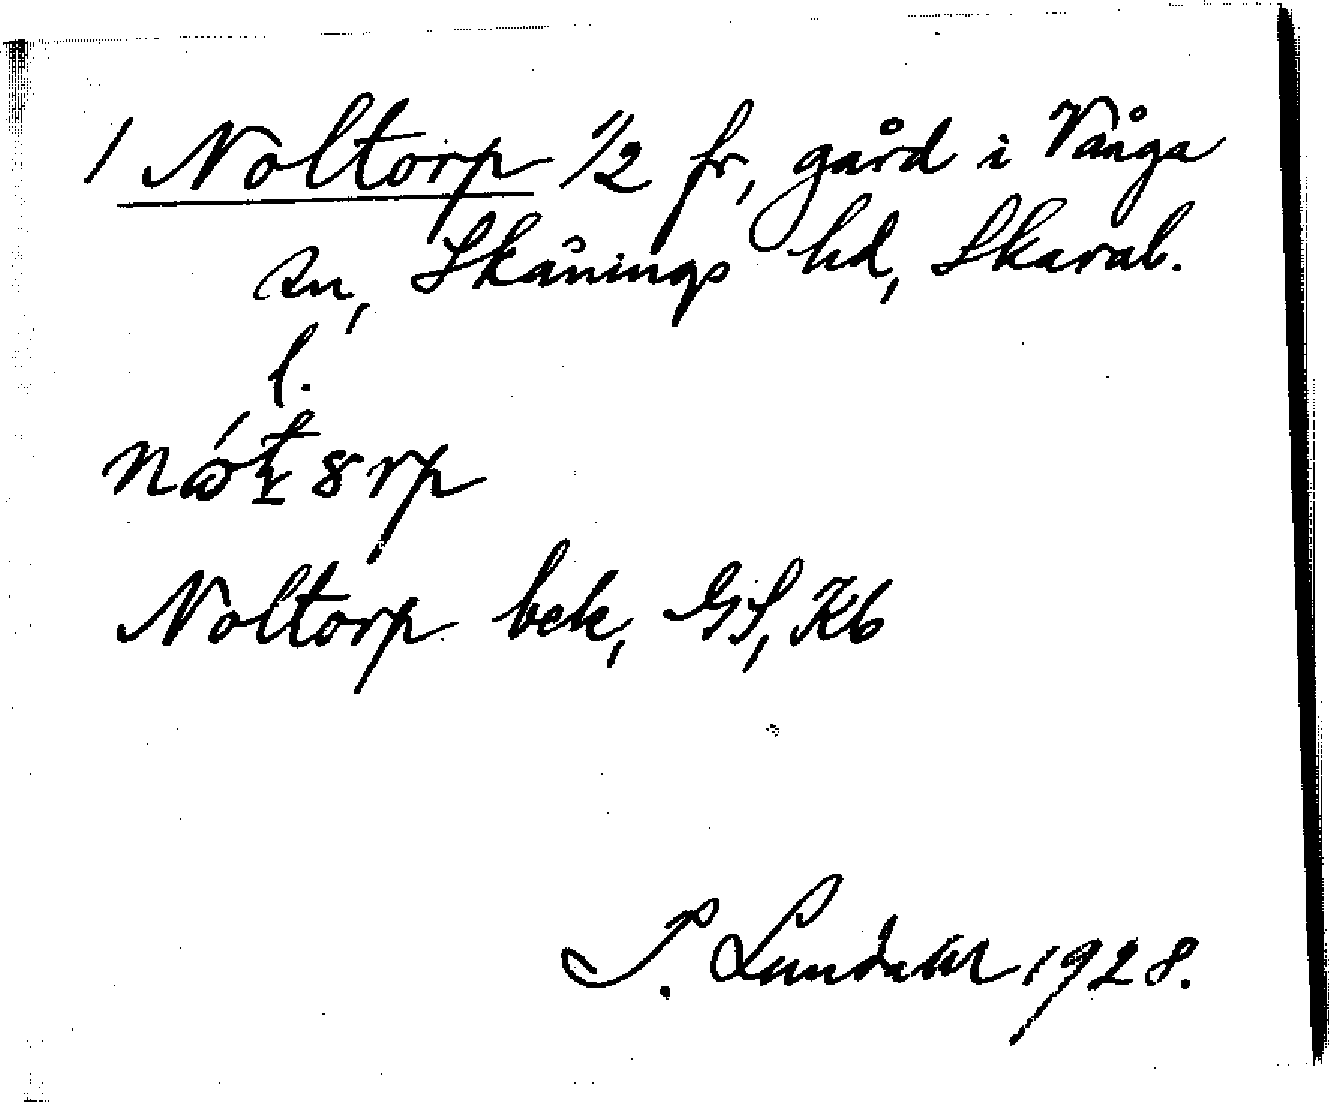 1 Noltorp 1/2 fr, gård i Vånga
sn, Skånings hd, Skarab.
l.
Noltorp bek, GS, Kb
S. Landahl 1928.